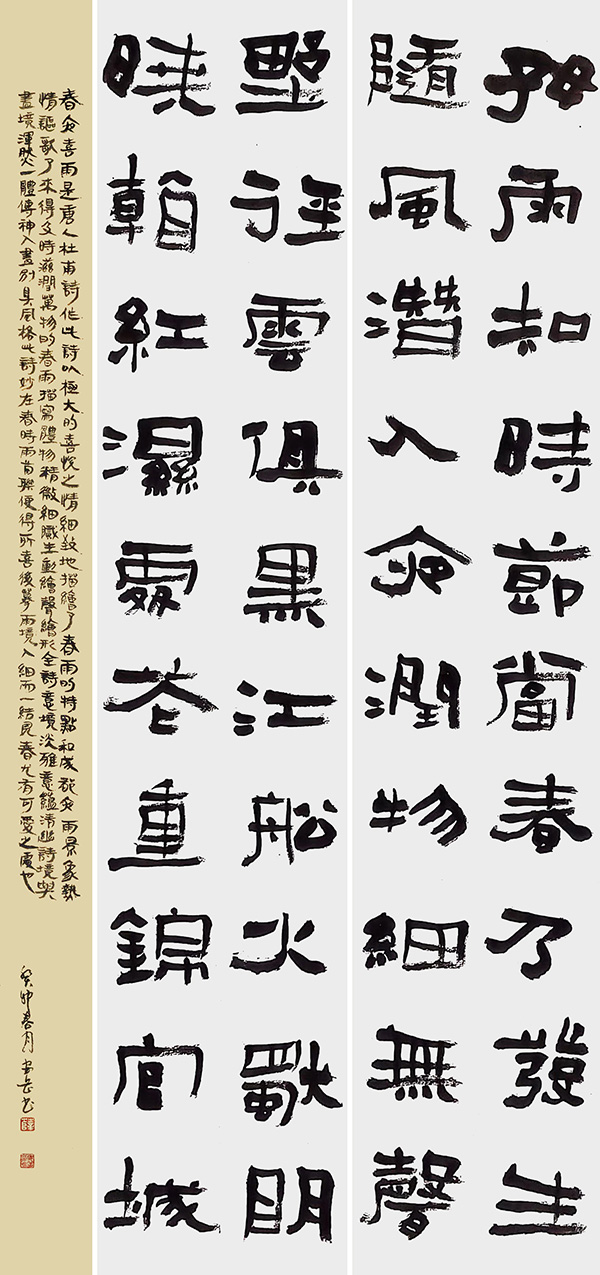 好雨知時節當春乃發生
隨風潛入夜潤物細無聲
野徑雲俱黑江船火獨明
曉看紅濕處花重錦官城
春夜喜雨是唐人杜甫詩作此詩以極大的喜悅之情細致地描繪了春雨的特點和成都夜雨景象熱
情謳歌了來得及時滋潤萬物的春雨描寫體物精微細膩生動繪聲繪形全詩意境淡雅意蘊清幽詩境與
畫境渾然一體傳神入畫別具風格此詩妙在春時雨首聯便得所喜後摹雨境入細而一結見春尤有可愛之處也
癸卯春月安岳书